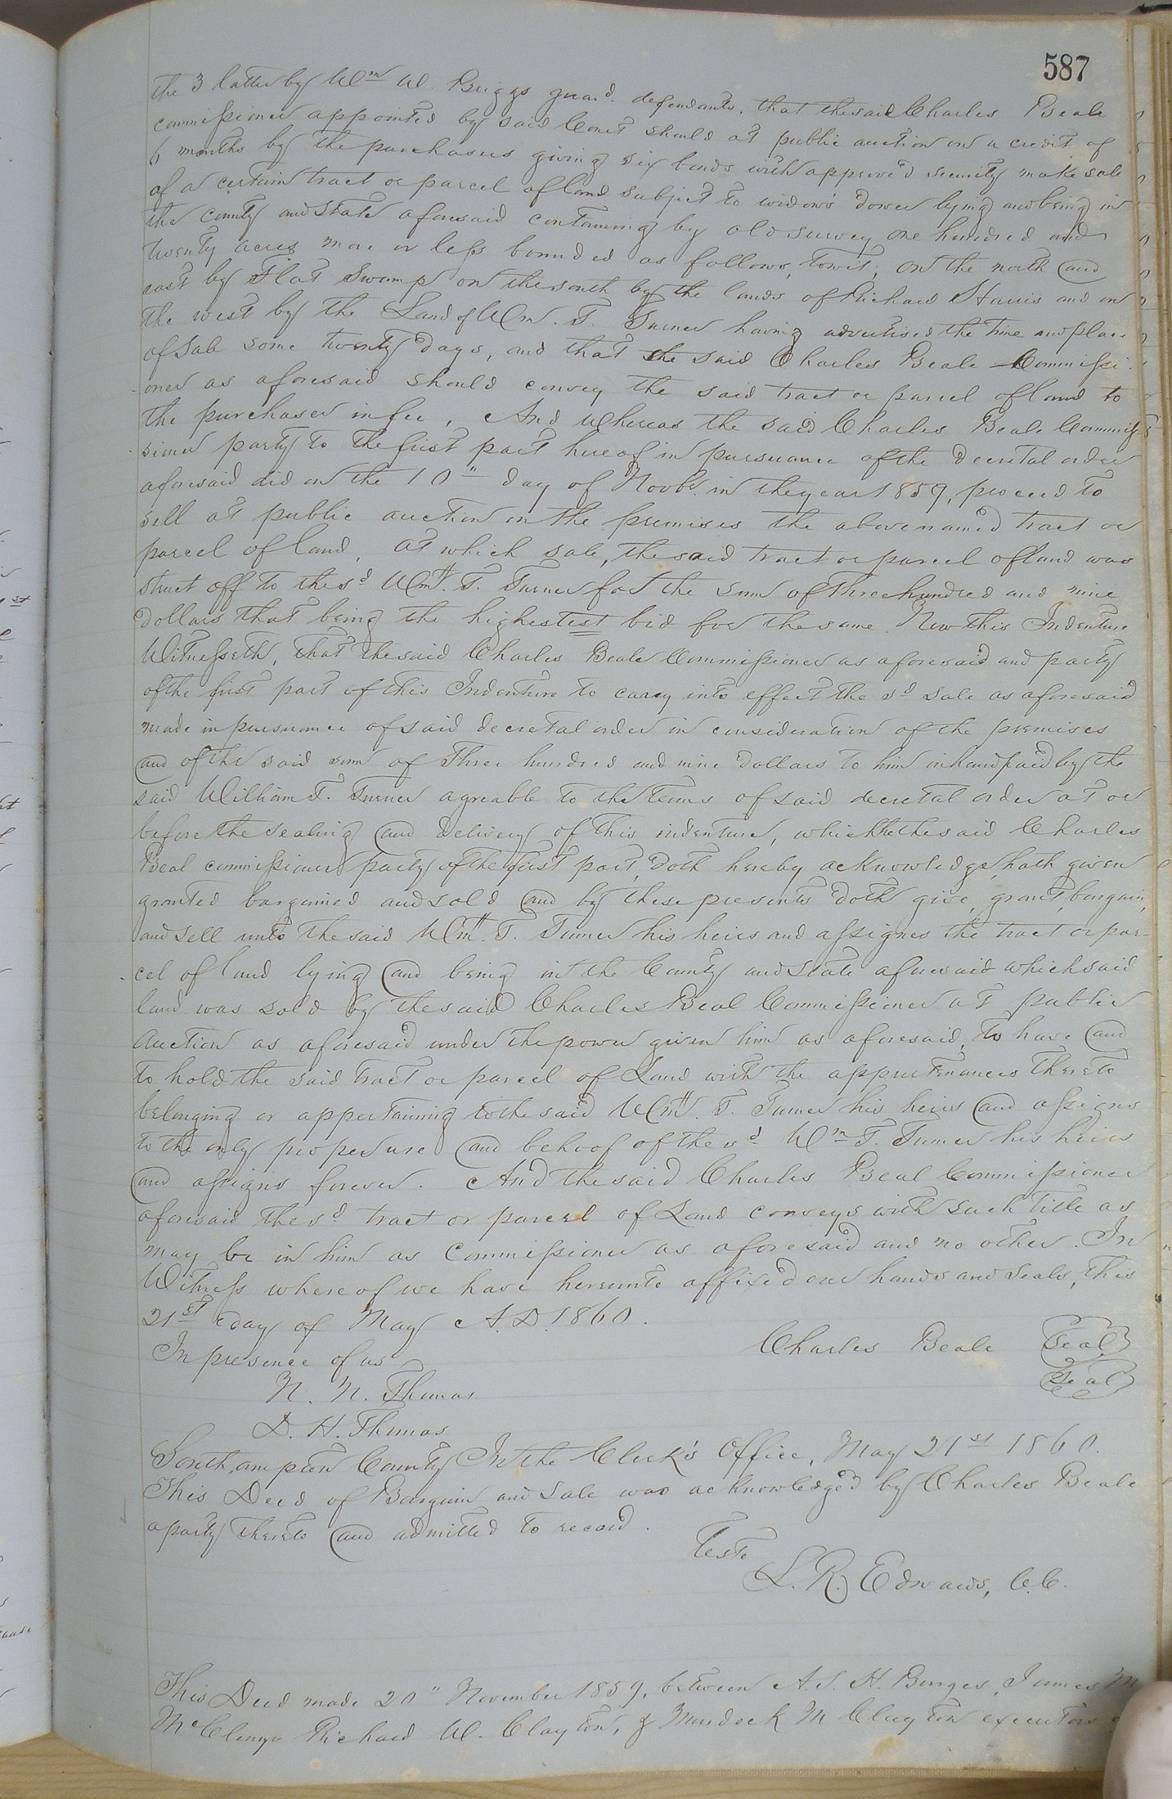 587
the 3 latter by Wm W. Briggs guard. defendants, that the said Charles Beale
commissioner appointed by said Court should at public auction on a credit of
6 months by the purchasers giving six bonds with approved security make sale
of a certain tract or parcel of land subject to widows dower lying and being in
the county and State aforesaid containing by old survey one hundred and
twenty acres more or less bounded as follows, towit, on the north and
east by Flat Swamp on the south by the lands of Richard Harris and on
the west by the Land of Wm. T. Turner having advertised the time and place
of Sale some twenty days, and that the said Charles Beale Commissi-
oner as aforesaid should convey the said tract or parcel of land to
the purchaser in fee, And whereas the said Charles Beale Commis-
sioner party to the first part hereof in pursuance of the decretal order
aforesaid did on the 10" day of Novbr. in the year 1859, proceed to
sell at public auction on the premises the above named tract or
parcel of land, at which sale, the said tract or parcel of land was
struct off to the sd Wm. T. Turner for the sum of three hundred and nine
dollars that being the highestest bid for the same. Now this Indenture
Witnesseth, that the said Charles Beale Commissioner as aforesaid and party
of the first part of this Indenture to carry into effect the sd sale as aforesaid
made in pursuance of said decretal order in consideration of the premises
and of the said sum of Three hundred and nine Dollars to him in hand paid by the
said William T. Turner agreable to the terms of said decretal order at or
before the sealing and delivery of this indenture, which the said Charles
Beal commissioner party of the first part, doth hereby acknowledge hath given
granted bargained and sold and by these presents doth give, grant, bargain,
and sell unto the said Wm. T. Turner his heirs and assignes the tract or par-
cel of land lying and being in the County and State aforesaid which said
land was sold by the said Charles Beal Commissioner at public
Auction as aforesaid under the power given him as aforesaid, to have and
to hold the said tract or parcel of Land with the appurtenances thereto
belonging or appertaining to the said Wm. T. Turner his heirs and assigns
to the only proper use and behoof of the sd Wm T. Turner his heirs
and assigns forever. And the said Charles Beal Commissioner
aforesaid the sd tract or parcel of Land conveys with such title as
may be in him as Commissioner as aforesaid and no other. In
Witness whereof we have hereunto affixed our hands and seals, this
21st day of May A.D. 1860.
Charles Beale Seal
In presence of us
Seal
N. N. Thomas
D. H. Thomas
Southampton County In the Clerk's Office, May 21st 1860.
This Deed of Bargain and Sale was acknowledged by Charles Beale
a party thereto and admitted to record.
Teste
L. R. Edwards, C.C.
This Deed made 20" November 1859, between A. S. H. Burges, James M
McClenny Richard W. Clayton, & Murdock M Clayton executors